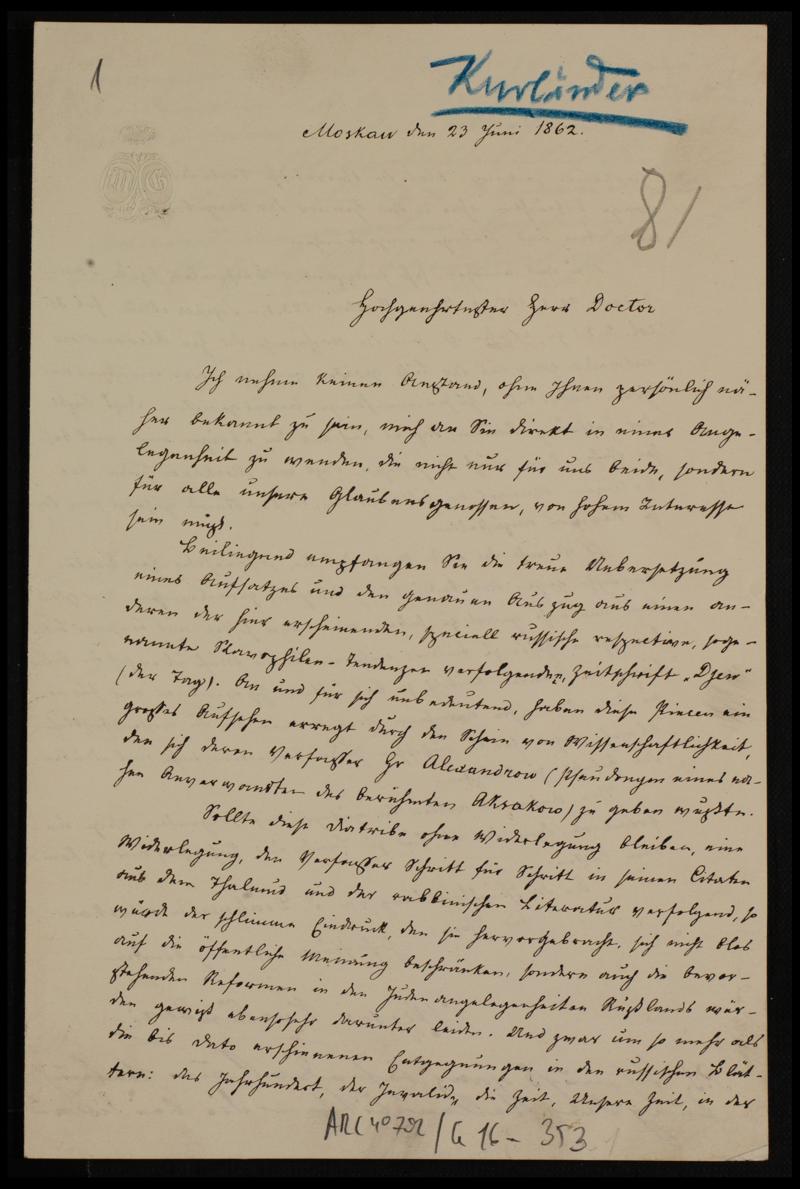 1
Kurländer
Moskau den 23 Juni 1862.
MG
81
Hochgeehrtester Herr Doctor
Ich nehme keinen Anstand, ohne Ihnen persönlich nä-
her bekannt zu sein, mich an Sie direkt in einer Ange-
legenheit zu wenden, die nicht nur für uns beide, sondern
für alle unsere Glaubensgenossen, von hohem Interesse
sein muß.
Beiliegend empfangen Sie die treue Uebersetzung
eines Aufsatzes und den genauen Auszug aus einen an-
deren der hier erscheinenden, speciell russische respective, soge-
nannte Slavophilen-Tendenzen verfolgenden, Zeitschrift „Djen"
(der Tag). An und für sich unbedeutend, haben diese Piecen ein
großes Aufsehen erregt durch den Schein von Wissenschaftlichkeit,
den sich deren Verfasser Hr Alexandrow (Pseudonym eines na-
hen Anverwandten des berühmten Aksakow) zu geben wußte.
Sollte diese Diatribe ohne Widerlegung bleiben, eine
Widerlegung, den Verfasser Schritt für Schritt in seinen Citaten
aus dem Thalmud und der rabbinischen Literatur verfolgend, so
würde der schlimme Eindruck, den sie hervorgebracht, sich nicht blos
auf die öffentliche Meinung beschränken, sondern auch die bevor-
stehenden Reformen in den Judenangelegenheiten Rußlands wür-
den gewiß ebensosehr darunter leiden. Und zwar um so mehr als
die bis dato erschienenen Entgegnungen in den russischen Blät-
tern: das Jahrhundert, der Invalid, die Zeit, Unsere Zeit, in der
ARC 4° 792 / G 16 - 353